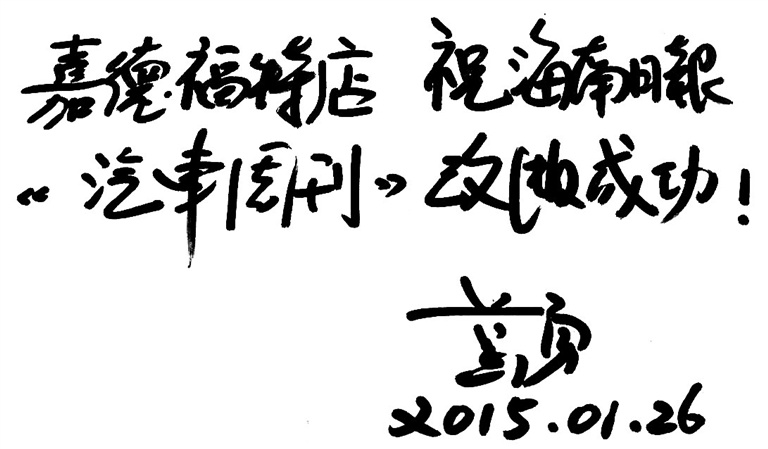 嘉德福特店 祝海南日報
《汽車周刊》改版成功！
2015.01.26